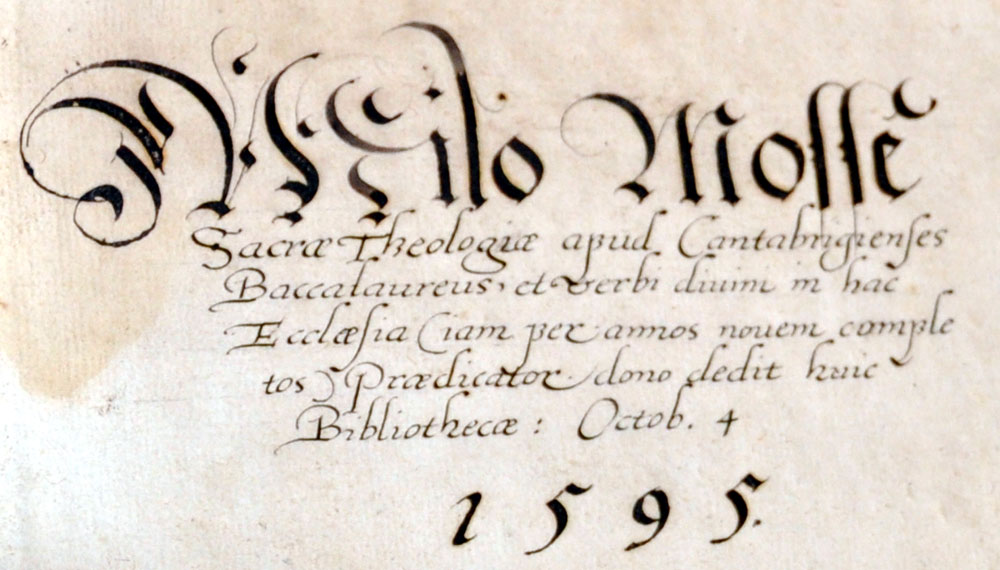 Milo Mossē
Sacræ Theologiæ apud Cantabrigienses
Baccalaureus, et verbi diuini in hac
Ecclæsia (iam per annos nouem comple
tos) Prædicator dono dedit huic
Bibliothecæ: Octob. 4
1595.